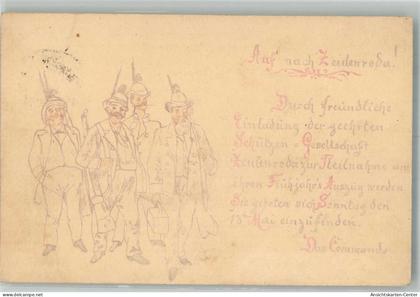 Auf nach Zeulenroda!
Durch freundliche
Einladung der geehrten
Schützen Gesellschaft
Zeulenroda zur Theilnahme an
ihren Frühjahrs Auszug werden
Sie gebeten sich Sonntag den
13t Mai einzufinden.
Das Command
www.ansichtskarten-center.de
Ansichtskarten-Center